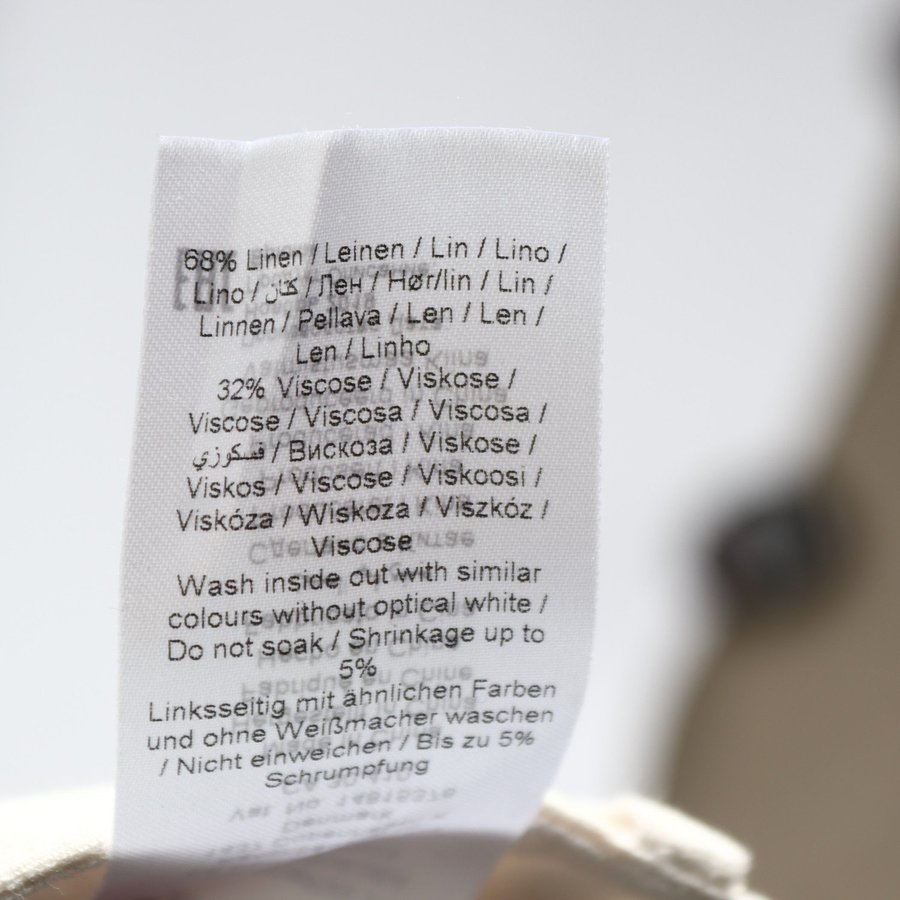 68% Linen / Leinen / Lin / Lino /
Lino / كتان / Лен / Hør/lin / Lin /
Linnen / Pellava / Len / Len /
Len / Linho
32% Viscose / Viskose /
Viscose / Viscosa / Viscosa /
فسكوزي / Вискоза / Viskose /
Viskos / Viscose / Viskoosi /
Viskóza / Wiskoza / Viszkóz /
Viscose
Wash inside out with similar
colours without optical white /
Do not soak / Shrinkage up to
5%
Linksseitig mit ähnlichen Farben
und ohne Weißmacher waschen
/ Nicht einweichen / Bis zu 5%
Schrumpfung